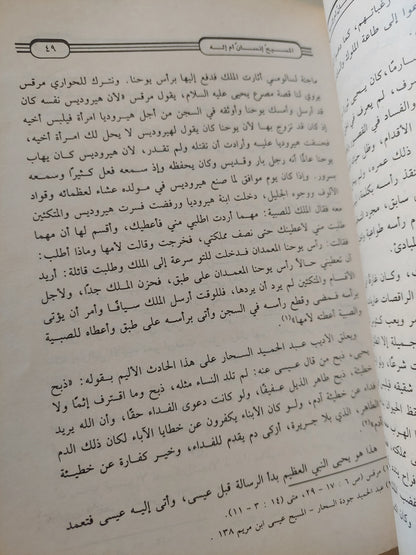 ٤٩
المسيح إنسان أم إله
ماجنة لسالومي أثارت الملك فدفع إليها برأس يوحنا. ونترك للحواري مرقس
يروي لنا قصة مصرع يحيى عليه السلام، يقول مرقس «لأن هيرودس نفسه كان
قد أرسل وأمسك يوحنا وأوثقه في السجن من أجل هيروديا امرأة فيلبس أخيه
إذ كان قد تزوج بها لأن يوحنا كان يقول لهيرودس لا يحل لك امرأة أخيه،
فحنقت هيروديا عليه وأرادت أن تقتله ولم تقدر، لأن هيرودس كان يهاب
يوحنا عالمًا أنه رجل بار وقديس وكان يحفظه وإذ سمعه فعل كثيرًا وسمعه
بسرور. وإذا كان يوم موافق لما صنع هيرودس في مولده عشاء لعظمائه وقواد
الألوف ووجوه الجليل، دخلت ابنة هيروديا ورقصت فسرت هيرودس والمتكئين
معه فقال الملك للصبية: مهما أردت اطلبي مني فأعطيك، وأقسم لها أن مهما
طلبت مني لأعطينك حتى نصف مملكتي، فخرجت وقالت لأمها وماذا أطلب:
فقالت: رأس يوحنا المعمدان فدخلت للتو سرعة إلى الملك وطلبت قائلة: أريد
أن تعطيني حالاً رأس يوحنا المعمدان على طبق، فحزن الملك جدًا، ولأجل
الأقسام والمتكئين لم يرد أن يردها، فللوقت أرسل الملك سيافًا وأمر أن يؤتى
برأسه فمضى وقطع رأسه في السجن وأتى برأسه على طبق وأعطاه للصبية
والصبية أعطته لأمها»(١).
ويعلق الأديب عبد الحميد السحار على هذا الحادث الأليم بقوله: «ذبح
يحيى، ذبح من قال عيسى عنه: لم تلد النساء مثله، ذبح وما اقترف إثمًا ولا
خطيئة، ذبح طاهر الذيل عفيفًا، ولو كانت دعوى الفداء حقًا، وأن الله يريد
فداء عن خطيئة آدم، ولو كان الأبناء يكفرون عن خطايا الآباء لكان ذلك الدم
الطاهر، الذي بلا جريرة، أزكى دم يقدم للفداء، وخير كفارة عن خطيئة
آدم»(٢).
هذا هو يحيى النبي العظيم بدأ الرسالة قبل عيسى، وأتى إليه عيسى فتعمد
(١) مرقس (ص ٦ : ١٧ - ٢٩، متى (١٤ : ٣ - ١١).
(٢) عبد الحميد جودة السحار - المسيح عيسى ابن مريم ١٣٨.